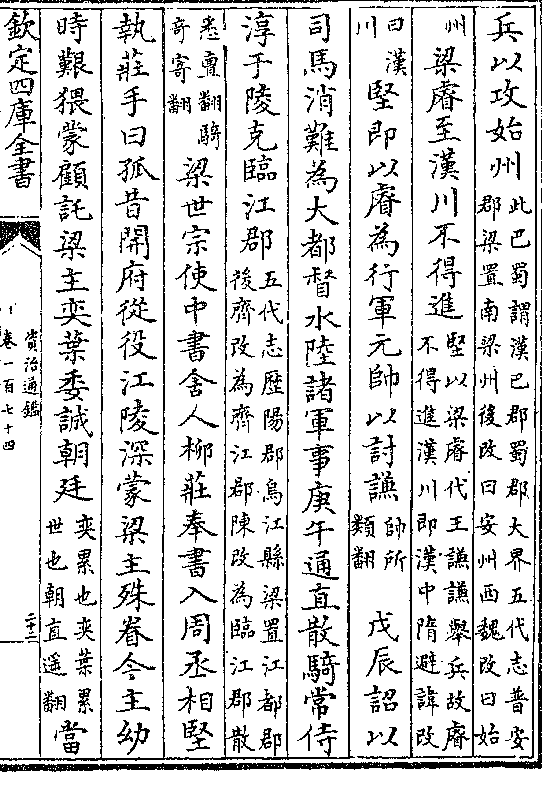 兵以攻始州此巴蜀謂漢巴郡蜀郡大界五代志普安
郡梁置南梁州後改曰安州西魏改曰始
州梁睿至漢川不得進堅以梁睿代王謙謙舉兵故睿
不得進漢川即漢中隋避諱改
曰漢
川堅即以睿為行軍元帥以討謙帥所
類翻戊辰詔以
司馬消難為大都督水陸諸軍事庚午通直散騎常侍
淳于陵克臨江郡五代志歷陽郡烏江縣梁置江都郡
後齊改為齊江郡陳改為臨江郡散
悉亶翻騎
奇寄翻梁世宗使中書舍人柳莊奉書入周丞相堅
執莊手曰孤昔開府從役江陵深蒙梁主殊眷今主幼
時艱猥蒙顧託梁主奕葉委誠朝廷奕累也奕葉累
世也朝直遥翻當
欽定四庫全書
資治通鑑
卷一百七十四
二十二